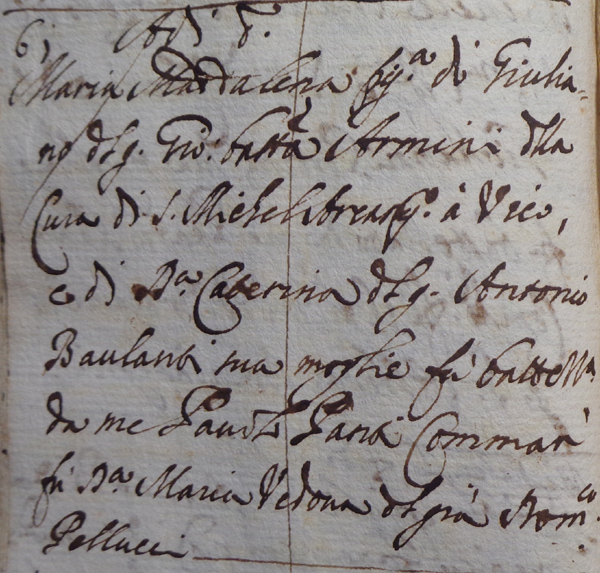 6; Adi 8.
Maria Maddalena fig.a di Giulia-
no d'lg. Gio: batta Armini d'lla
Cura di S. Michel Arcang.o à Vico,
e di D.a Caterina d'lg. Antonio
sua moglie fù battezza
da me Pauolo Commar
fù D.a Maria Vedova d'l già Dom.co
Pellucci